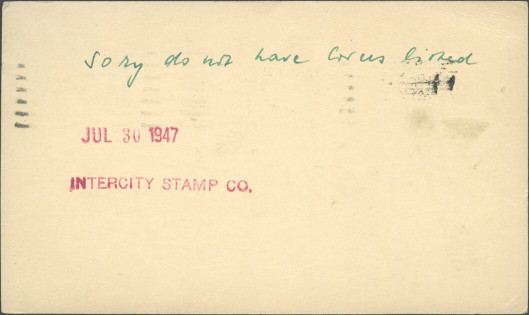 Sory do not have Covers listed
JUL 30 1947
INTERCITY STAMP CO.